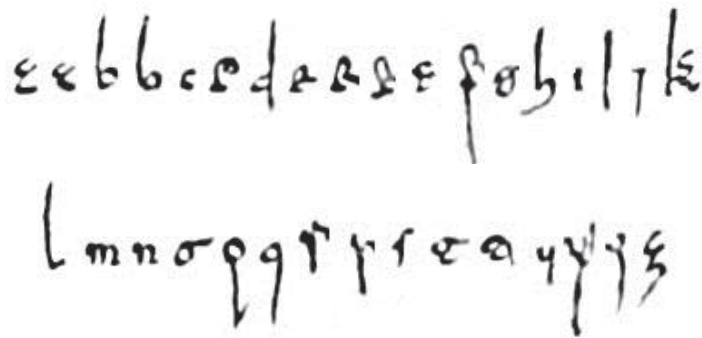 a a b b c c d e e e e f g h i l j k
l m n o p q r r s t t y y y z